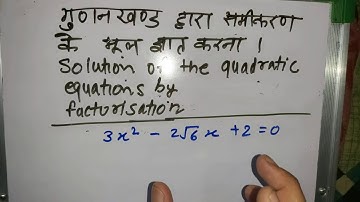 गुणनखण्ड द्वारा समीकरण
के मूल ज्ञात करना ।
Solution of the quadratic
equations by
factorisation
3x² - 2√6x + 2 = 0